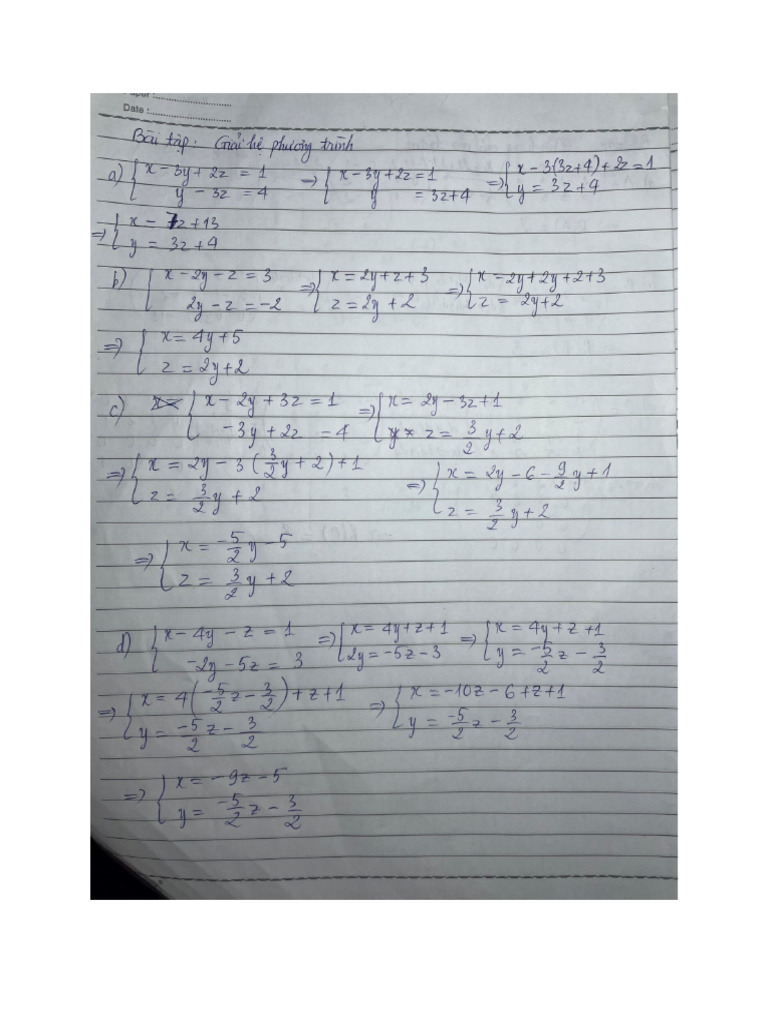 Date :
Bài tập. Giải hệ phương trình
a) { x - 3y + 2z = 1 ; y - 3z = 4 => { x - 3y + 2z = 1 ; y = 3z + 4 => { x - 3(3z+4) + 2z = 1 ; y = 3z + 4
=> { x - 7z + 13 ; y = 3z + 4
b) { x - 2y - z = 3 ; 2y - z = -2 => { x = 2y + z + 3 ; z = 2y + 2 => { x - 2y + 2y + 2 + 3 ; z = 2y + 2
=> { x = 4y + 5 ; z = 2y + 2
c) { x - 2y + 3z = 1 ; -3y + 2z = 4 => { x = 2y - 3z + 1 ; z = 3/2 y + 2
=> { x = 2y - 3(3/2 y + 2) + 1 ; z = 3/2 y + 2 => { x = 2y - 6 - 9/2 y + 1 ; z = 3/2 y + 2
=> { x = -5/2 y - 5 ; z = 3/2 y + 2
d) { x - 4y - z = 1 ; -2y - 5z = 3 => { x = 4y + z + 1 ; 2y = -5z - 3 => { x = 4y + z + 1 ; y = -5/2 z - 3/2
=> { x = 4(-5/2 z - 3/2) + z + 1 ; y = -5/2 z - 3/2 => { x = -10z - 6 + z + 1 ; y = -5/2 z - 3/2
=> { x = -9z - 5 ; y = -5/2 z - 3/2